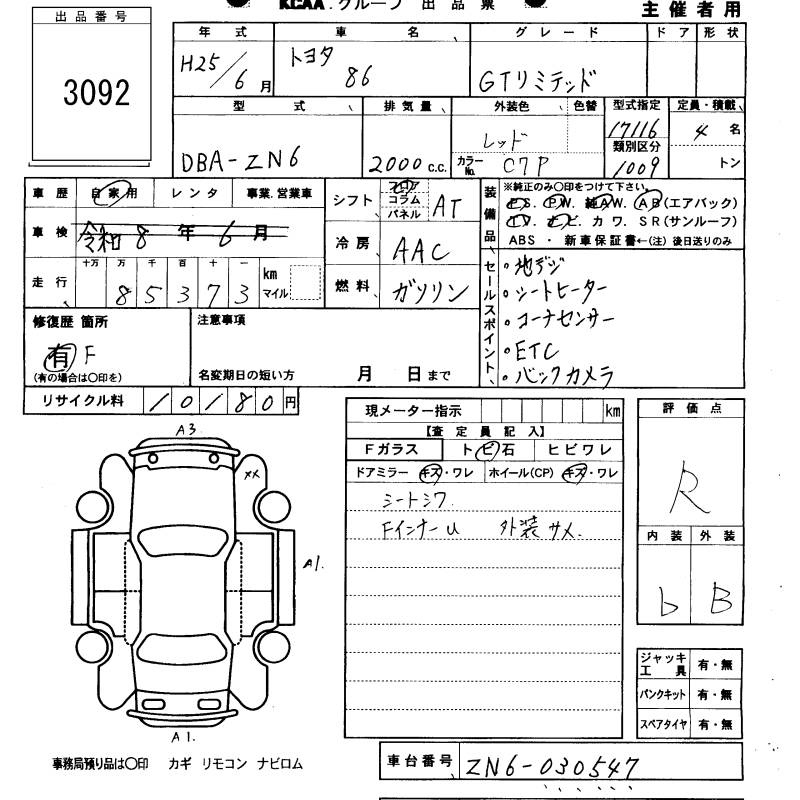 KCAA.グループ 出品票
主催者用
出品番号
3092
年式 車名 グレード ドア 形状
H25/6月 トヨタ 86 GTリミテッド
型式 排気量 外装色 色替 型式指定 定員・積載
DBA-ZN6 2000 c.c. レッド 17116 4名
カラーNo. C7P 類別区分 1009 トン
車歴 自家用 レンタ 事業.営業車
シフト フロア コラム パネル AT
装備品 ※純正のみ〇印をつけて下さい。
P.S. P.W. 純A.W. A.B(エアバック)
T.V. ナビ. カワ. SR(サンルーフ)
ABS・新車保証書←(注)後日送りのみ
車検 令和8年6月
冷房 AAC
走行 十万 万 千 百 十 一
85373 km マイル
燃料 ガソリン
セールスポイント
・地デジ
・シートヒーター
・コーナセンサー
・ETC
・バックカメラ
修復歴 箇所
有 F
(有の場合は〇印を)
注意事項
名変期日の短い方 月 日まで
リサイクル料 10180円
現メーター指示 km
【査定員記入】
Fガラス トビ石 ヒビワレ
ドアミラー キズ・ワレ ホイール(CP) キズ・ワレ
シートシワ
Fインナー U 外装サメ.
評価点
R
内装 外装
b B
A3
XX
A1.
A1.
ジャッキ工具 有・無
パンクキット 有・無
スペアタイヤ 有・無
事務局預り品は〇印 カギ リモコン ナビロム
車台番号 ZN6-030547